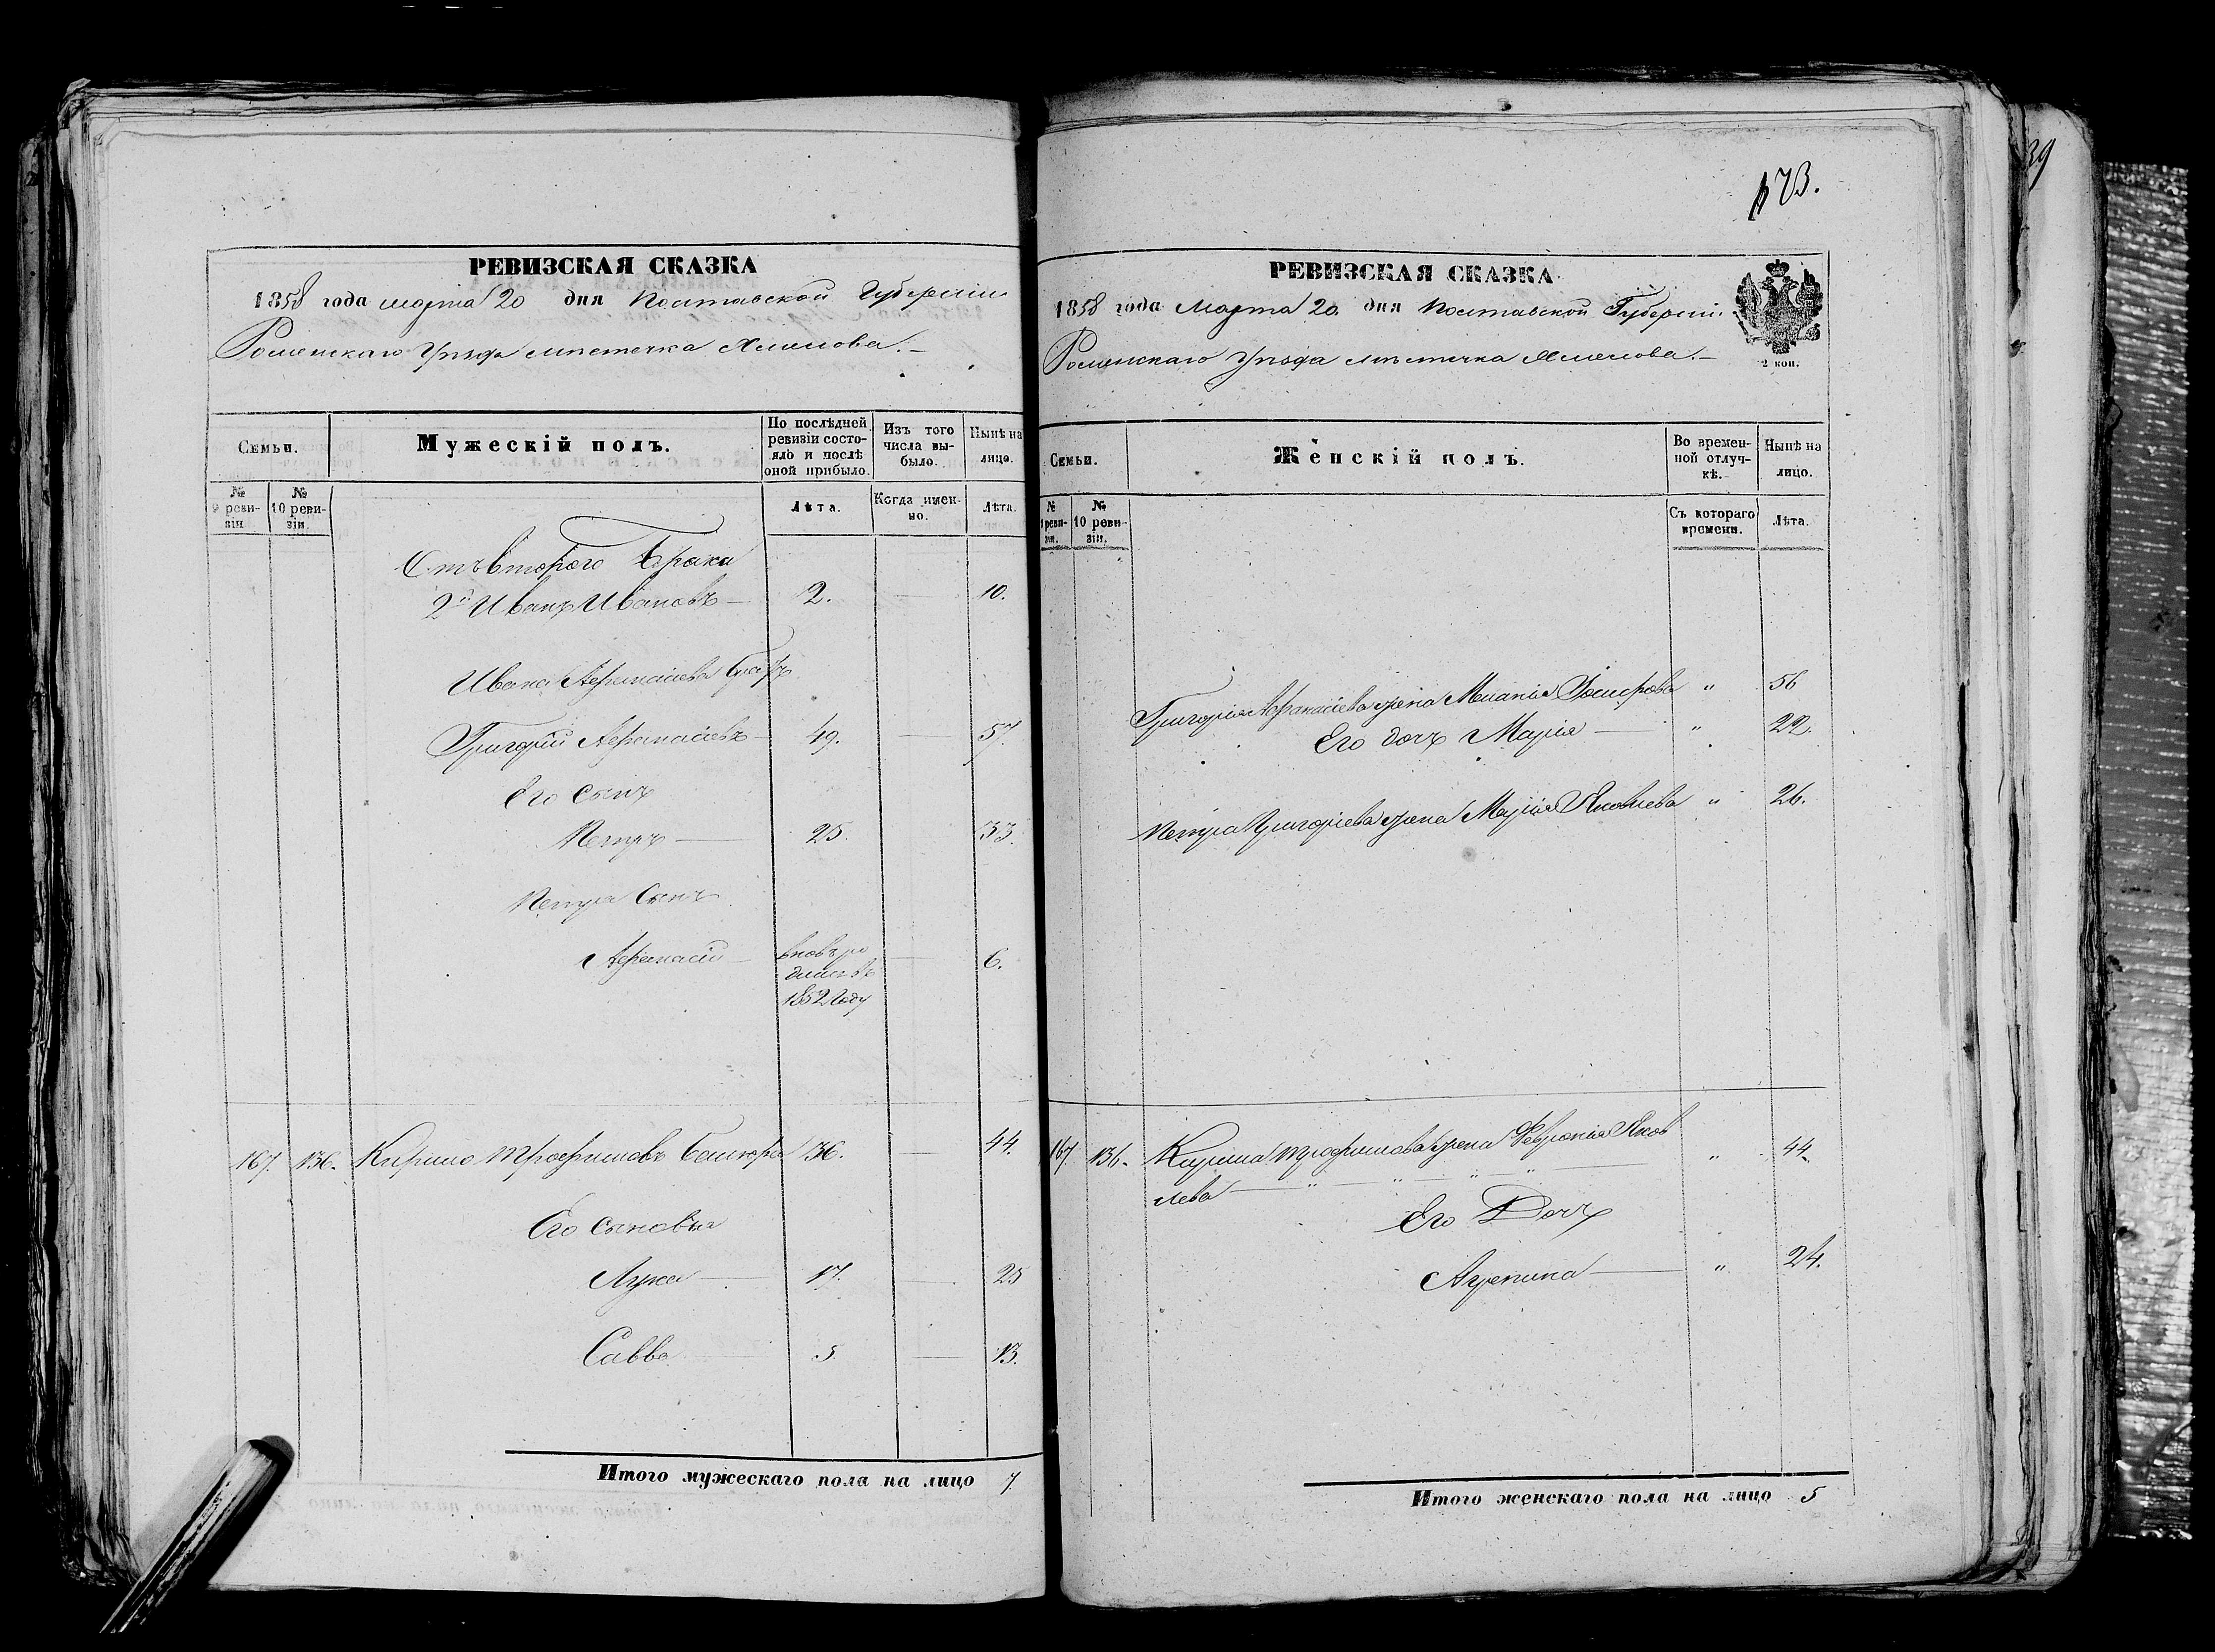 РЕВИЗСКАЯ СКАЗКА
1858 года марта 20 дня Полтавской Губерніи
Роменскаго Уѣзда мѣстечка Смѣлова.
Семьи.
Мужескій полъ.
По послѣдней ревизіи состояло и послѣ оной прибыло.
Изъ того числа выбыло.
Нынѣ на лицо.
№ 9 ревизіи
№ 10 ревизіи.
Лѣта.
Когда именно.
Лѣта.
Отъ второго брака
2й Иванъ Ивановъ — 2. — 10.
Ивана Афанасіева братъ
Григорій Афанасіевъ — 49. — 57.
Его сынъ
Петръ — 25. 33.
Петра сынъ
Афанасій — вновь ро
дился въ
1852 году — 6.
167. 136. Кирило Трофимовъ 36. — 44.
Его сыновья
Лука — 17. — 25
Савва — 5 — 13.
Итого мужескаго пола на лицо 7.
173.
РЕВИЗСКАЯ СКАЗКА
1858 года Марта 20 дня Полтавской Губерніи.
Роменскаго Уѣзда мѣстечка Смѣлова.
2 коп.
Семьи.
Женскій полъ.
Во временной отлучкѣ.
Нынѣ на лицо.
№ 9 ревизіи.
№ 10 ревизіи.
Съ котораго времени.
Лѣта.
Григорія Афанасіева жена Меланія " 56
Его дочь Марія — " 22.
Петра Григоріева жена Марія Яковлева " 26.
167. 136. Кирила Трофимова жена Февронія Яков
лева — " — " — " " " 44.
Его Дочь
Агрепина — " 24.
Итого женскаго пола на лицо 5
39